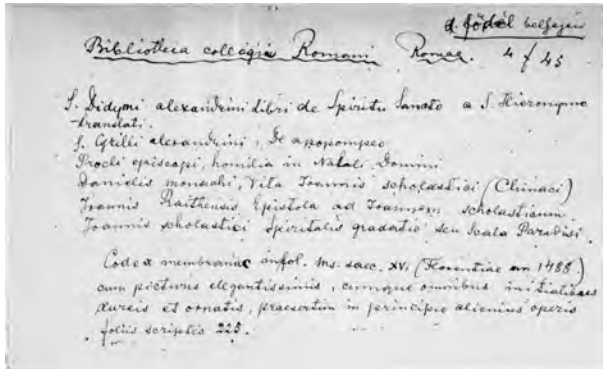 d. födél belsején
Bibliotheca collegii Romani Romae. 4 f 45
S. Didymi alexandrini libri de Spiritu Sancto a S. Hieronymo
translati.
S. Cyrilli alexandrini, De apopompeo
Procli episcopi, homilia in Natali Domini
Danielis monachi, Vita Joannis scholastici (Climaci)
Joannis Raithensis Epistola ad Joannem scholasticum
Joannis scholastici Spiritalis gradatio seu Scala Paradisi.
Codex membranac in fol. ms. saec. XV. (Florentiae an 1488.)
cum picturis elegantissimis, cumque omnibus initialibus
aureis et ornatis, praesertim in principio alicuius operis
foliis scriptis 225.